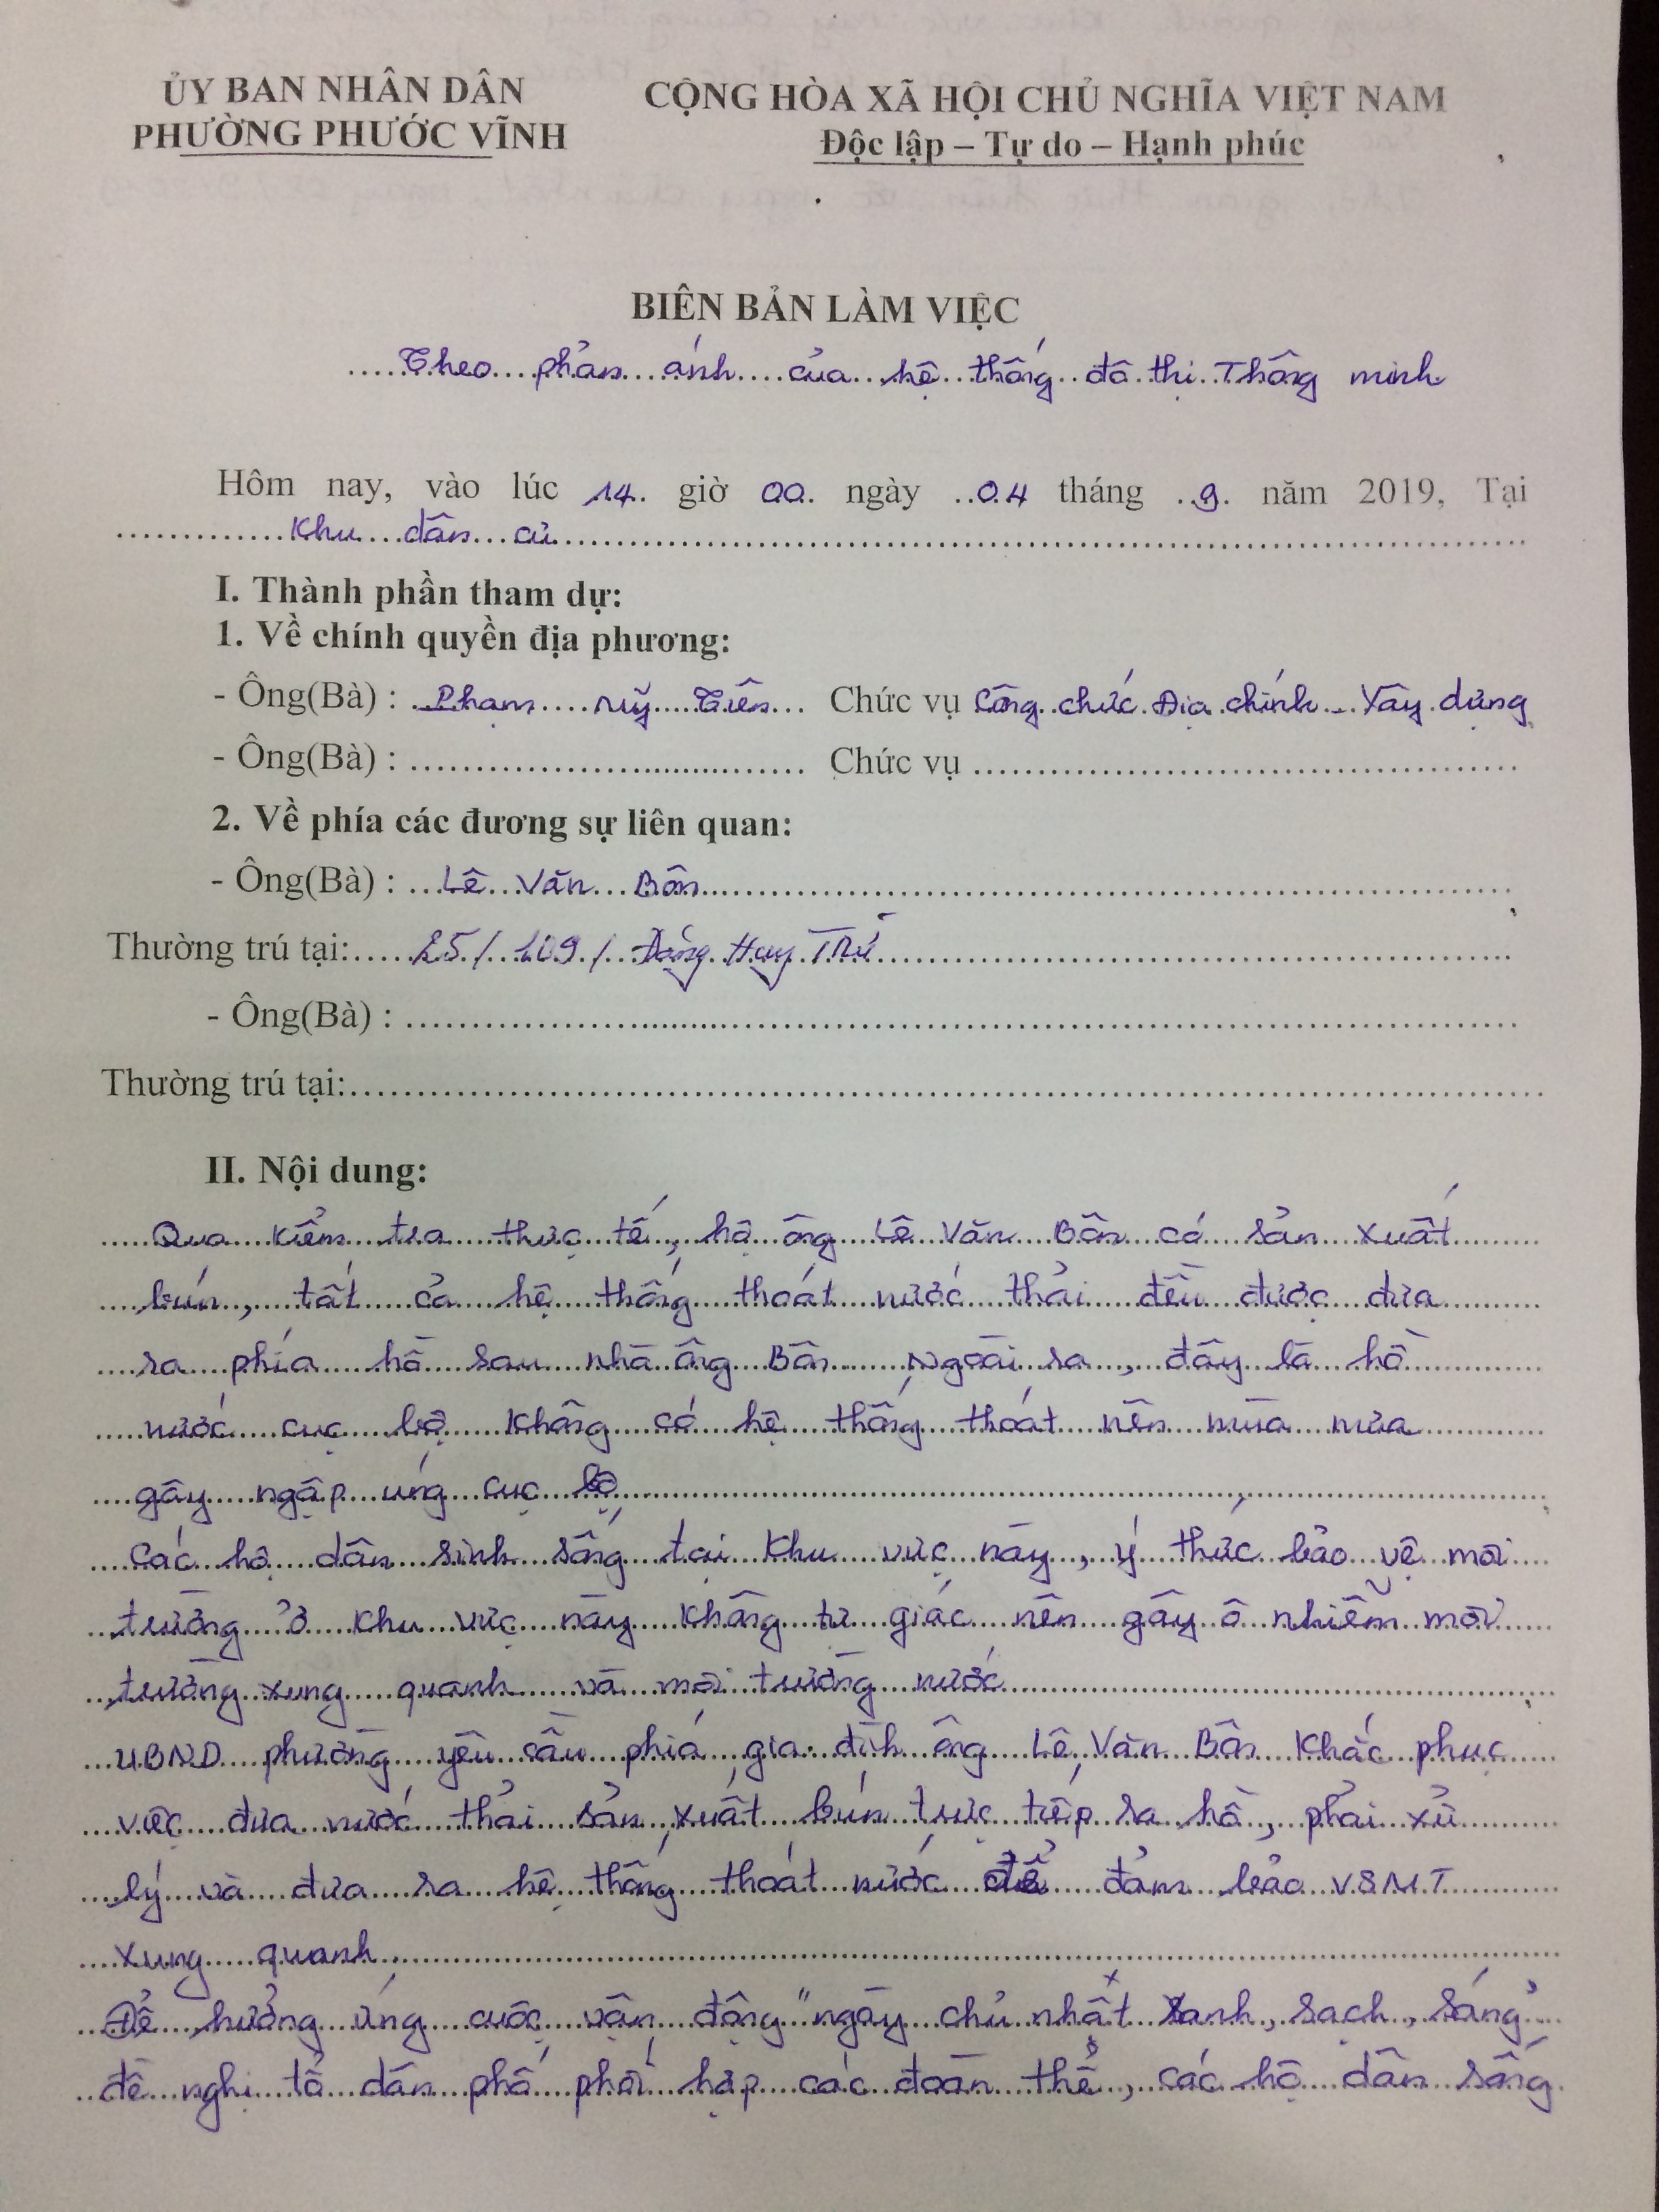 ỦY BAN NHÂN DÂN
PHƯỜNG PHƯỚC VĨNH
CỘNG HÒA XÃ HỘI CHỦ NGHĨA VIỆT NAM
Độc lập – Tự do – Hạnh phúc
BIÊN BẢN LÀM VIỆC
Theo phản ánh của hệ thống đô thị Thông minh
Hôm nay, vào lúc 14 giờ 00 ngày 04 tháng 9 năm 2019, Tại
Khu dân cư
I. Thành phần tham dự:
1. Về chính quyền địa phương:
- Ông(Bà) : Phạm Mỹ Tiên Chức vụ Công chức Địa chính - Xây dựng
- Ông(Bà) : Chức vụ
2. Về phía các đương sự liên quan:
- Ông(Bà) : Lê Văn Bôn
Thường trú tại: 25/109/ Đặng Huy Trứ
- Ông(Bà) :
Thường trú tại:
II. Nội dung:
Qua kiểm tra thực tế, hộ ông Lê Văn Bôn có sản xuất
bún, tất cả hệ thống thoát nước thải đều được đưa
ra phía hồ sau nhà ông Bôn. Ngoài ra, đây là hồ
nước cục bộ không có hệ thống thoát nên mùa mưa
gây ngập úng cục bộ.
Các hộ dân sinh sống tại khu vực này, ý thức bảo vệ môi
trường ở khu vực này không tự giác nên gây ô nhiễm môi
trường xung quanh và môi trường nước.
UBND phường yêu cầu phía gia đình ông Lê Văn Bôn khắc phục
việc đưa nước thải sản xuất bún trực tiếp ra hồ, phải xử
lý và đưa ra hệ thống thoát nước để đảm bảo V.S.M.T
xung quanh.
Để hưởng ứng cuộc vận động "ngày chủ nhật xanh, sạch, sáng"
đề nghị tổ dân phố phối hợp các đoàn thể, các hộ dân sống